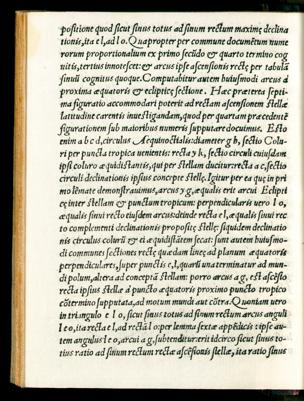 positione quod sicut sinus totus ad sinum rectum maximę declina
tionis, ita e l, ad l o. Quapropter per commune documētum nume
rorum proportionalium ex primo secūdo & quarto termino cog
nitis, tertius innotescet: & arcus ipse ascensionis rectę per tabulā
sinuū cognitus quoque. Computabitur autem huiusmodi arcus à
proxima æquatoris & eclipticę sectione. Hac præterea septi
ma figuratio accommodari poterit ad rectam ascensionem stellæ
latitudine carentis inuestigandam, quod per quartam præcedentē
figurationem sub maioribus numeris supputare docuimus. Esto
enim a b c d, circulus Aequinoctialis: diameter g b, sectio Colu-
ri per puncta tropica uenientis: recta y k, sectio circuli cuiusdam
ipsi coluro æquidistantis, qui per stellam ducitur: recta a c, sectio
circuli declinationis ipsius concepte stellę. Igitur per ea quę in pri
mo lēmate demonstrauimus, arcus y g, æqualis erit arcui Eclipti
cę inter stellam & punctum tropicum: perpendicularis uero l o,
æqualis sinui recto eiusdem arcus: deinde recta e l, æqualis sinui rec
to complementi declinationis propositę stellę: siquidem declinatio
nis circulus colurū & ei æquidistātem secat: sunt autem huiusmo-
di communes sectiones rectę quædam lineę ad planum æquatoris
perpendiculares, super punctis e l, quarū una terminatur ad mun-
di polum, altera ad conceptā stellam: porro arcus a g, est ascēsio
recta ipsius stellæ à puncto æquatoris proximo puncto tropico
cōtermino supputata, ad motum mundi aut cōtra. Quoniam uero
in triangulo e l o, sicut sinus totus ad sinum rectum arcus anguli
l e o, ita recta e l, ad rectā l o: per lemma sextæ appēdicis: ipse au-
tem angulus l e o, arcui a g, subtenditur: erit idcirco sicut sinus to-
tius ratio ad sinum rectum rectæ ascēsionis stellæ, ita ratio sinus